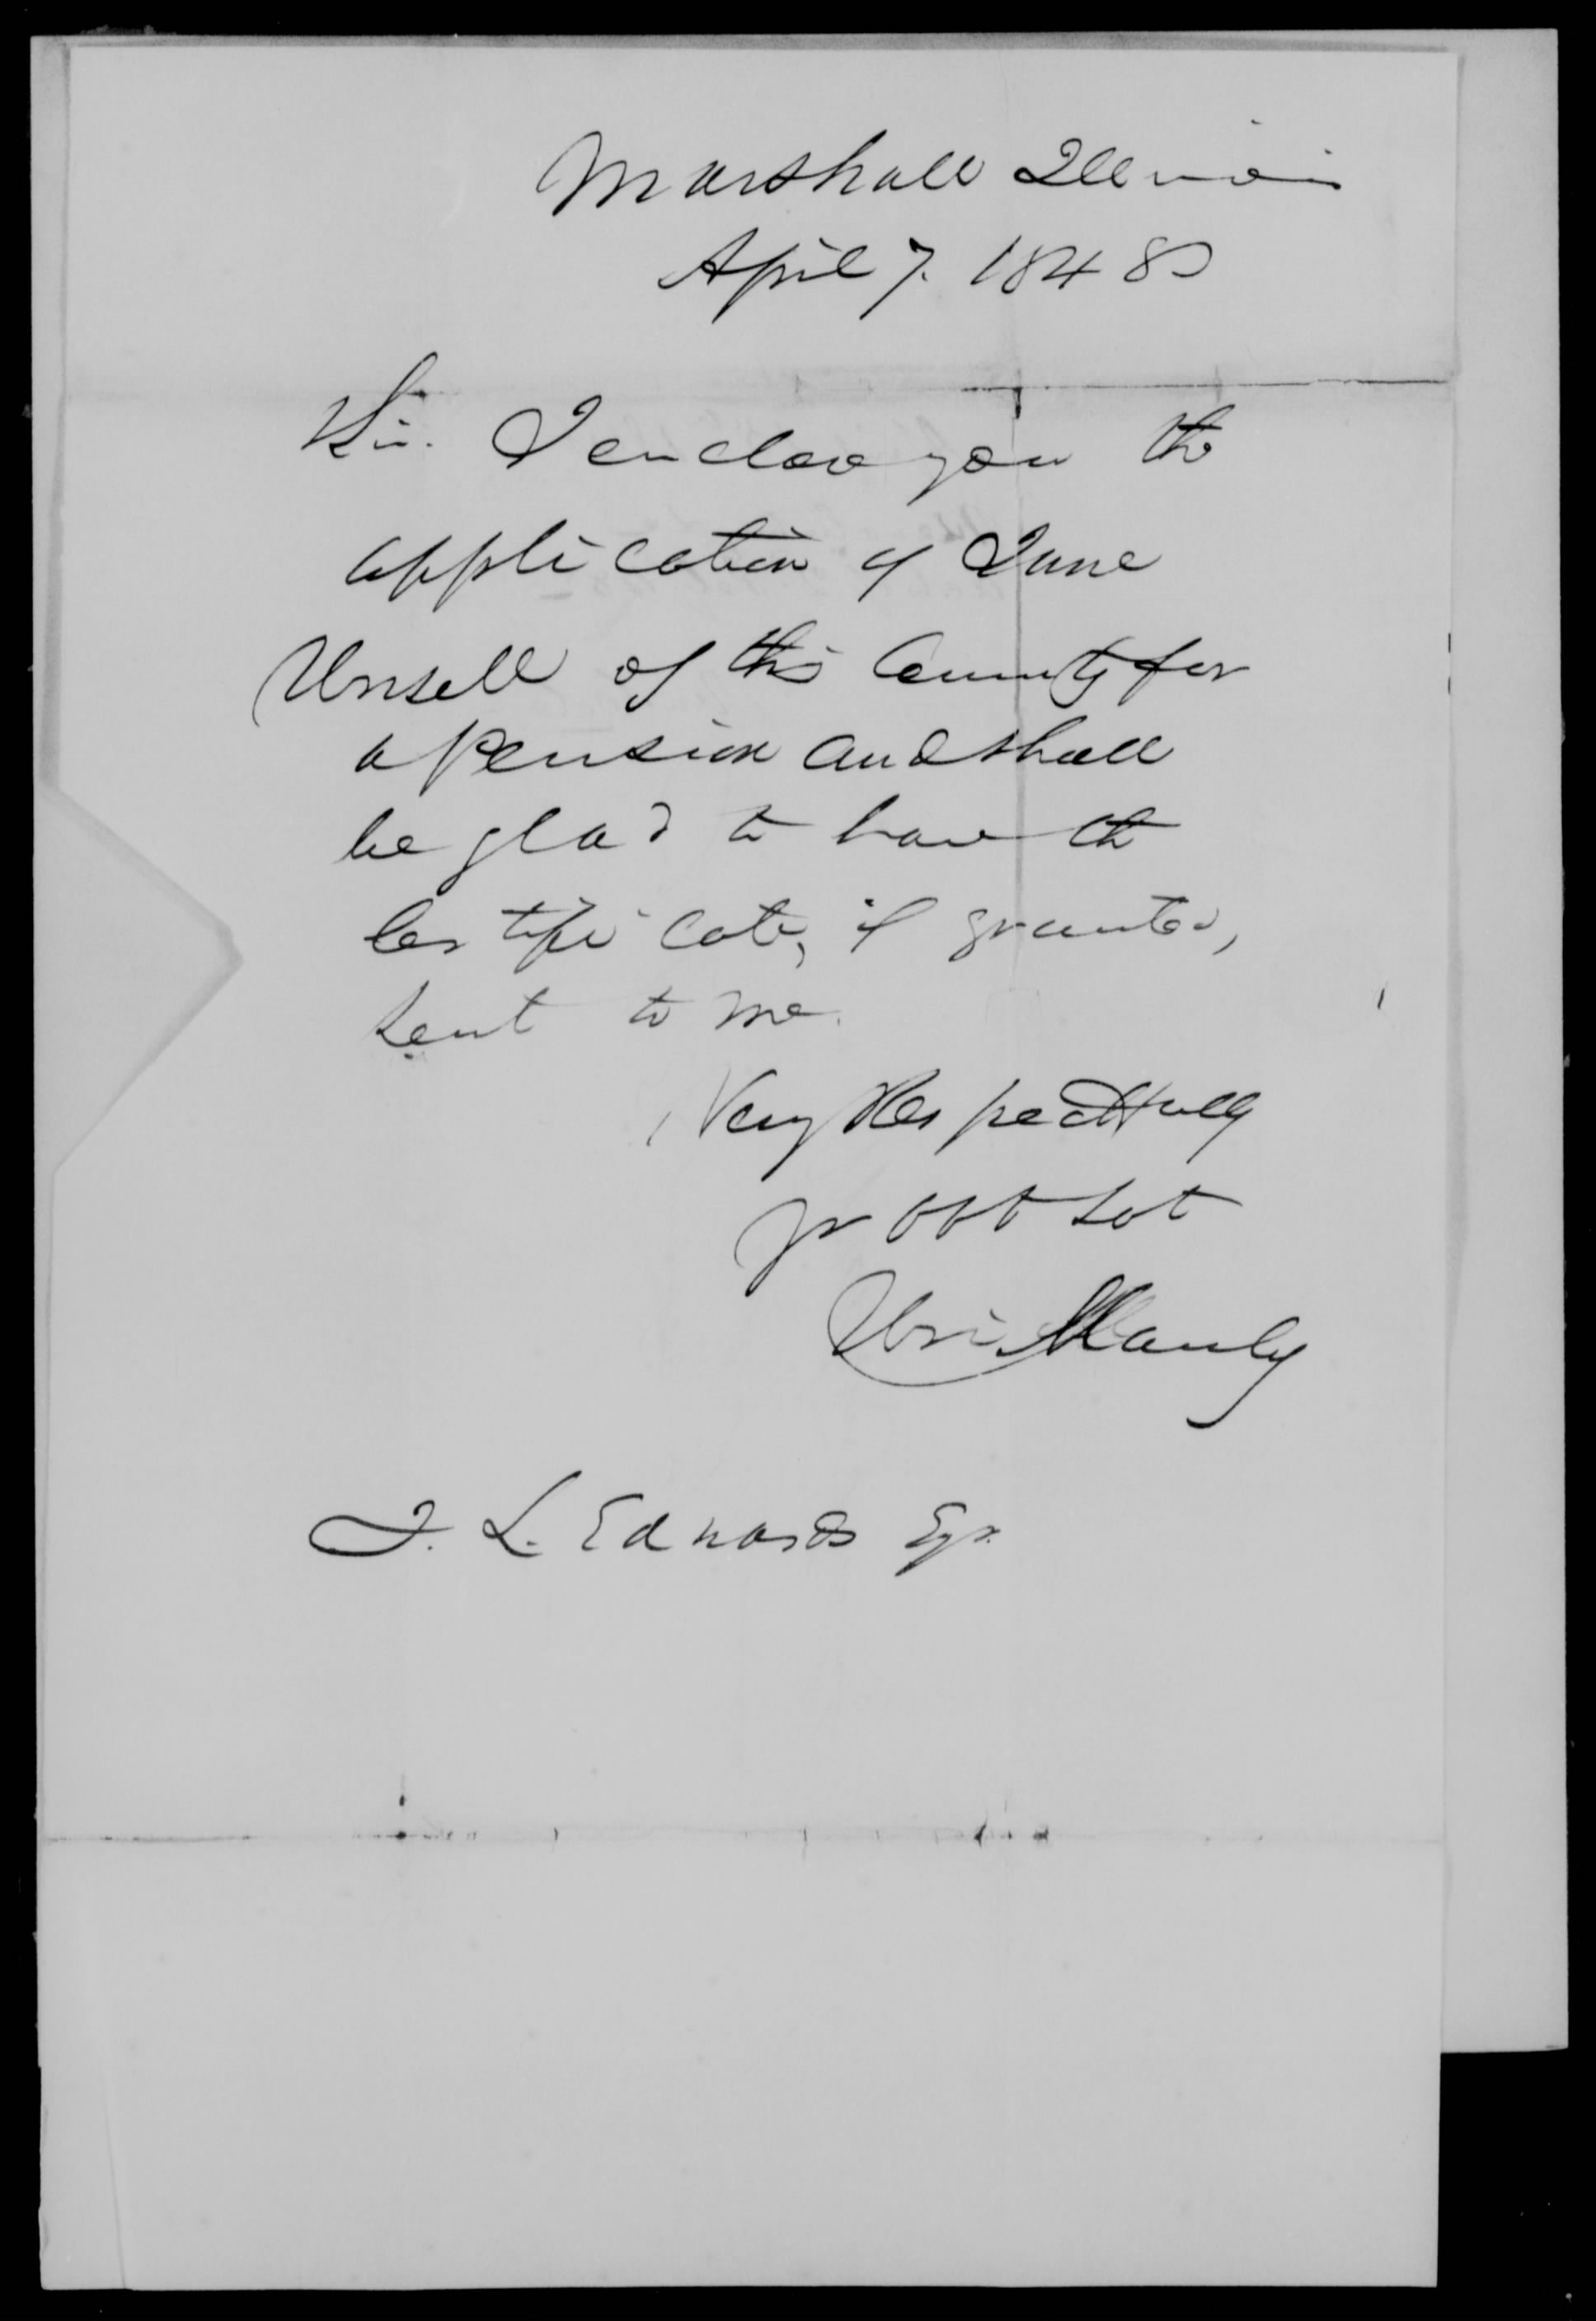 Marshall Illinois
April 7. 1848
Sir. I enclose you the
application of Jane
Unsell of this County for
a Pension and shall
be glad to have the
certificate, if granted,
sent to me.
Very Respectfully
yr obt svt
Uri Manly
J. L. Edwards Esqr.